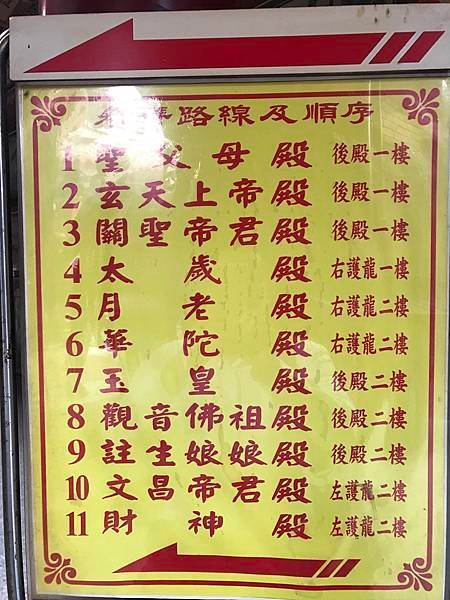 參拜路線及順序
1 聖父母殿 後殿一樓
2 玄天上帝殿 後殿一樓
3 關聖帝君殿 後殿一樓
4 太歲殿 右護龍一樓
5 月老殿 右護龍二樓
6 華陀殿 右護龍二樓
7 玉皇殿 後殿二樓
8 觀音佛祖殿 後殿二樓
9 註生娘娘殿 後殿二樓
10 文昌帝君殿 左護龍二樓
11 財神殿 左護龍二樓